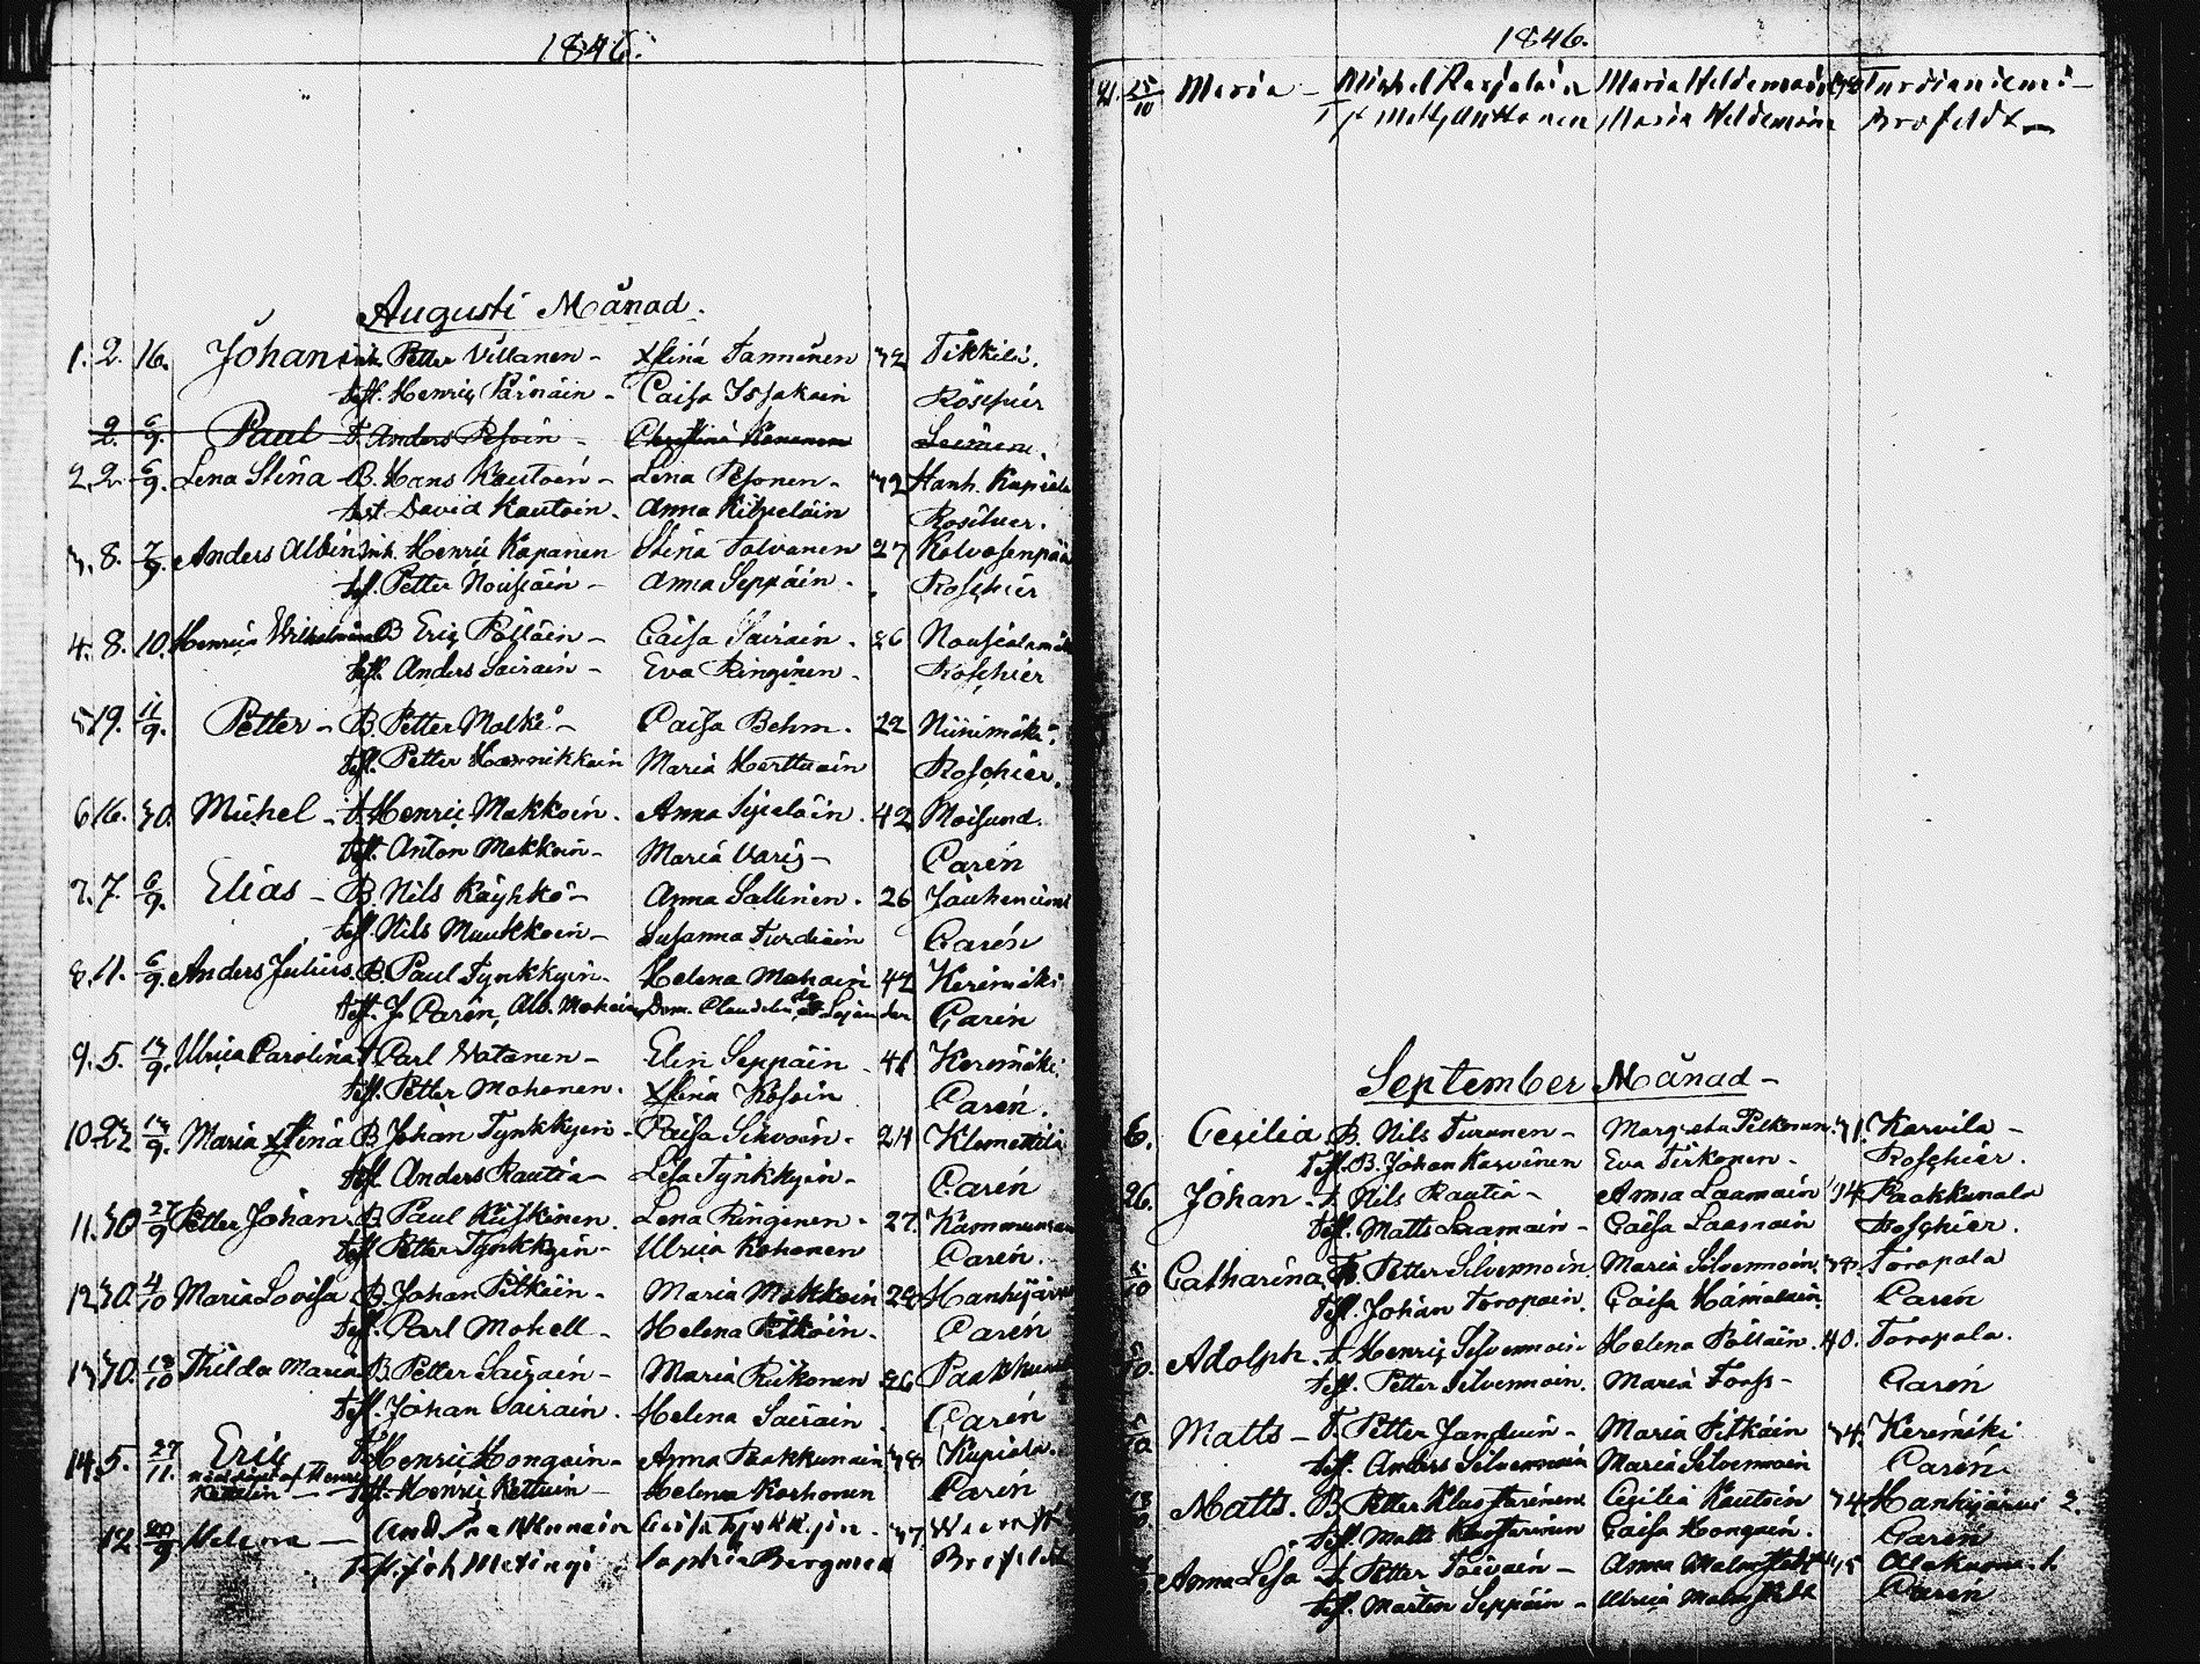 1846.
Augusti Månad.
1. 2. 16. Johan inh. Petter Villanen - Xstina Tannenen 32 Tikkilä.
test. Henric Pärnäin - Caisa Issakain Roschier
2. 6/9. Paul T. Anders Pesoin - Christina Kananen
2. 2. 6/9. Lena Stina - B. Hans Rautoin - Lena Pesonen - 32 Hanh. Kupiala
test David Kautoin. Anna Kilpeläin Roschier.
3. 8. 7/9. Anders Albin inh. Henric Kapanen Stina Tolvanen 27 Kolvosenpää
test. Petter Nousiain - Anna Seppäin. Roschier
4. 8. 10. Henrica Wilhelmina B Eric Pölläin - Caisa Sairain. 26
test. Anders Sairain - Eva Ringinen - Roschier
5. 19. 11/9. Petter - B. Petter Malki - Caisa Behm. 22 Niinimäki.
test. Petter Hannikkain Maria Herttuain Roschier.
6. 16. 30. Michel - T. Henric Makkoin. Anna Sipeläin. 42 Moisund.
test. Anton Makkoin - Maria Varis - Carén
7. 7. 6/9. Elias - B. Nils Käyhkö - Anna Sallinen. 26 Jouhenniemi
test. Nils Muukkoin - Susanna Turdiain Carén
8. 11. 6/9. Anders Julius. B. Paul Tynkkyin - Helena Mahoin 42 Kerimäki
test. J. Carén, Alb. Mohoin, Dom. Carén
9. 5. 13/9. Ulrica Carolina T Carl Watanen - Elin Seppäin - 41 Kerimäki.
test. Petter Mohonen. Xstina Kosoin Carén.
10. 23 13/9. Maria Xstina B Johan Tynkkyin - Caisa Silvoin - 24 Klemettilä
test. Anders Rautia - Lisa Tynkkyin - Carén
11. 30 27/9 Petter Johan B Paul Kuiskinen. Lena Ringinen - 27.
test. Petter Tynkkyin - Ulrica Kohonen Carén.
12. 30. 4/10 Maria Lovisa B. Johan Pitkäin - Maria Makkoin Hanhijärvi
test. Carl Mohell - Helena Pitkäin. Carén
13. 30. 18/10 Thilda Maria B. Petter Sairain - Maria Riikonen 26
test. Johan Sairain. Helena Sairain Carén
14. 5. 27/11. Eric T. Henric Hongain - Anna Paakkunain 38 Kupiala.
af Henric Kettuin - test. Henric Kettuin - Helena Korhonen Carén
12 20/9 Helena - And. Caisa Tynkkyin. 37.
test. Joh Metinyi Sophia Bergman Brofeldt
1846.
21. 25/10 Maria - Michel Karjalain Maria Heldemoin Turdianiemi -
Maria Heldemoin Brofeldt -
September Månad -
6. Cecilia B. Nils Turunen - Margreta Pelkonen. 31. Karvila -
test. B. Johan Karvinen Eva Tirkonen - Roschier.
26. Johan - T. Nils Rautia - Anna Laamain 34 Paakkunala
test. Matts Laamain - Caisa Laamain Roschier.
5/10 Catharina T. Petter Silvennoin. Maria Silvennoin. Toropala
test. Johan Toropain. Caisa Hämäläin. Carén
5/10. Adolph. T. Henric Silvennoin Helena Pölläin. 40. Toropala.
test. Petter Silvennoin. Maria Forss - Carén
5/10 Matts - T. Petter Janduin - Maria Pitkäin 34. Kerimäki
test. Anders Silvennoin Maria Silvennoin Carén
Matts. B Petter Klustarinen Cecilia Kautoin 34 Hanhijärvi 2.
test. Matts Klustarinen Caisa Hongain. Carén
Anna Lisa T. Petter Toivain - Anna Malmstedt
test. Mårten Seppäin - Ulrica Malmstedt Carén